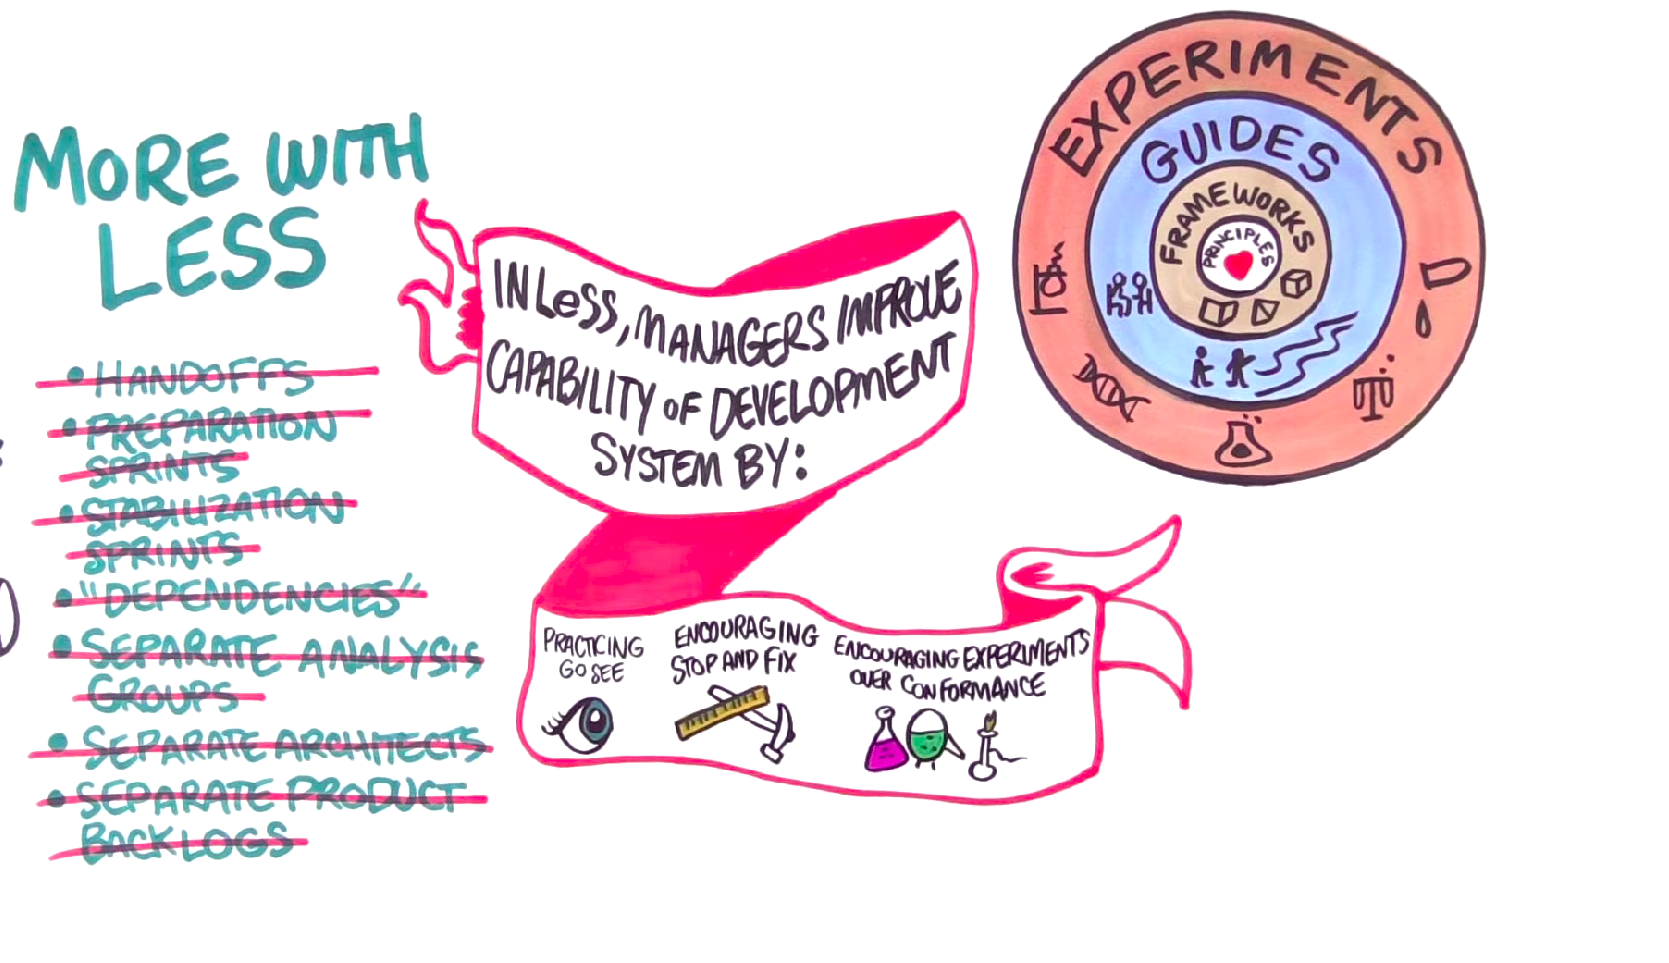 MORE WITH
LESS
• HANDOFFS
• PREPARATION
SPRINTS
• STABILIZATION
SPRINTS
• "DEPENDENCIES"
• SEPARATE ANALYSIS
GROUPS
• SEPARATE ARCHITECTS
• SEPARATE PRODUCT
BACKLOGS
IN LeSS, MANAGERS IMPROVE
CAPABILITY OF DEVELOPMENT
SYSTEM BY:
PRACTICING
GO SEE
ENCOURAGING
STOP AND FIX
ENCOURAGING EXPERIMENTS
OVER CONFORMANCE
EXPERIMENTS
GUIDES
FRAMEWORKS
PRINCIPLES